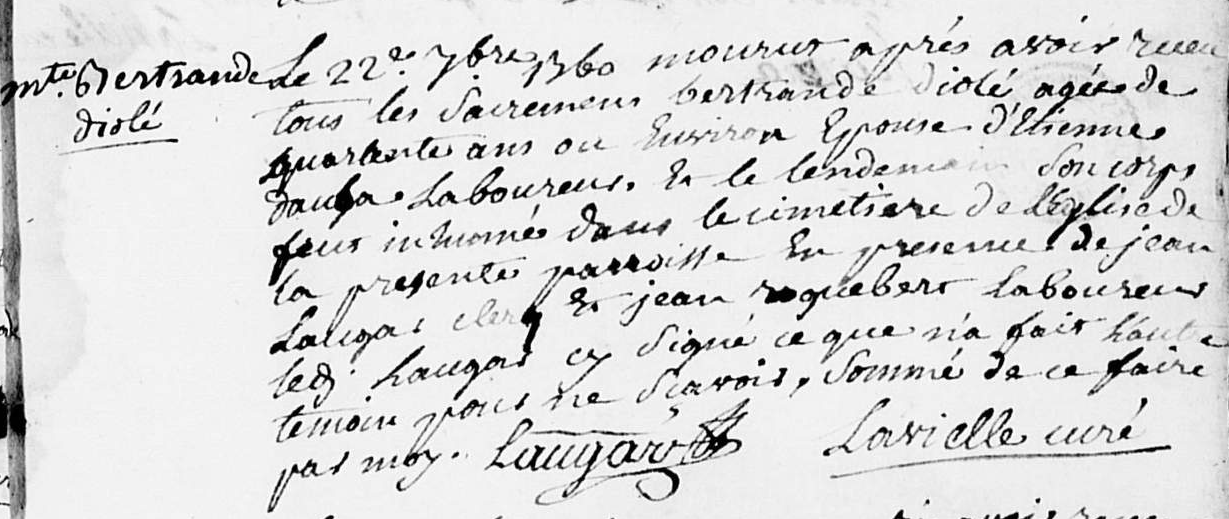 mte. Bertrande
diolé
Le 22e. 7bre 1760 mourut aprés avoir receu
tous les Sacremens bertrande diolé agée de
quarente ans ou Environ Epouse d'Etienne
dauba Laboureur. Et le lendemain Son corps
feut inhumé dans le cimetiere de l'Eglise de
la presente parroisse En presence de jean
Laugar clerq Et jean roquebert Laboureur
led. Laugar cy Signé ce que n'a fait l'autre
temoin pour ne Sçavoir, Sommé de ce faire
par moy. Laugar Lavielle curé